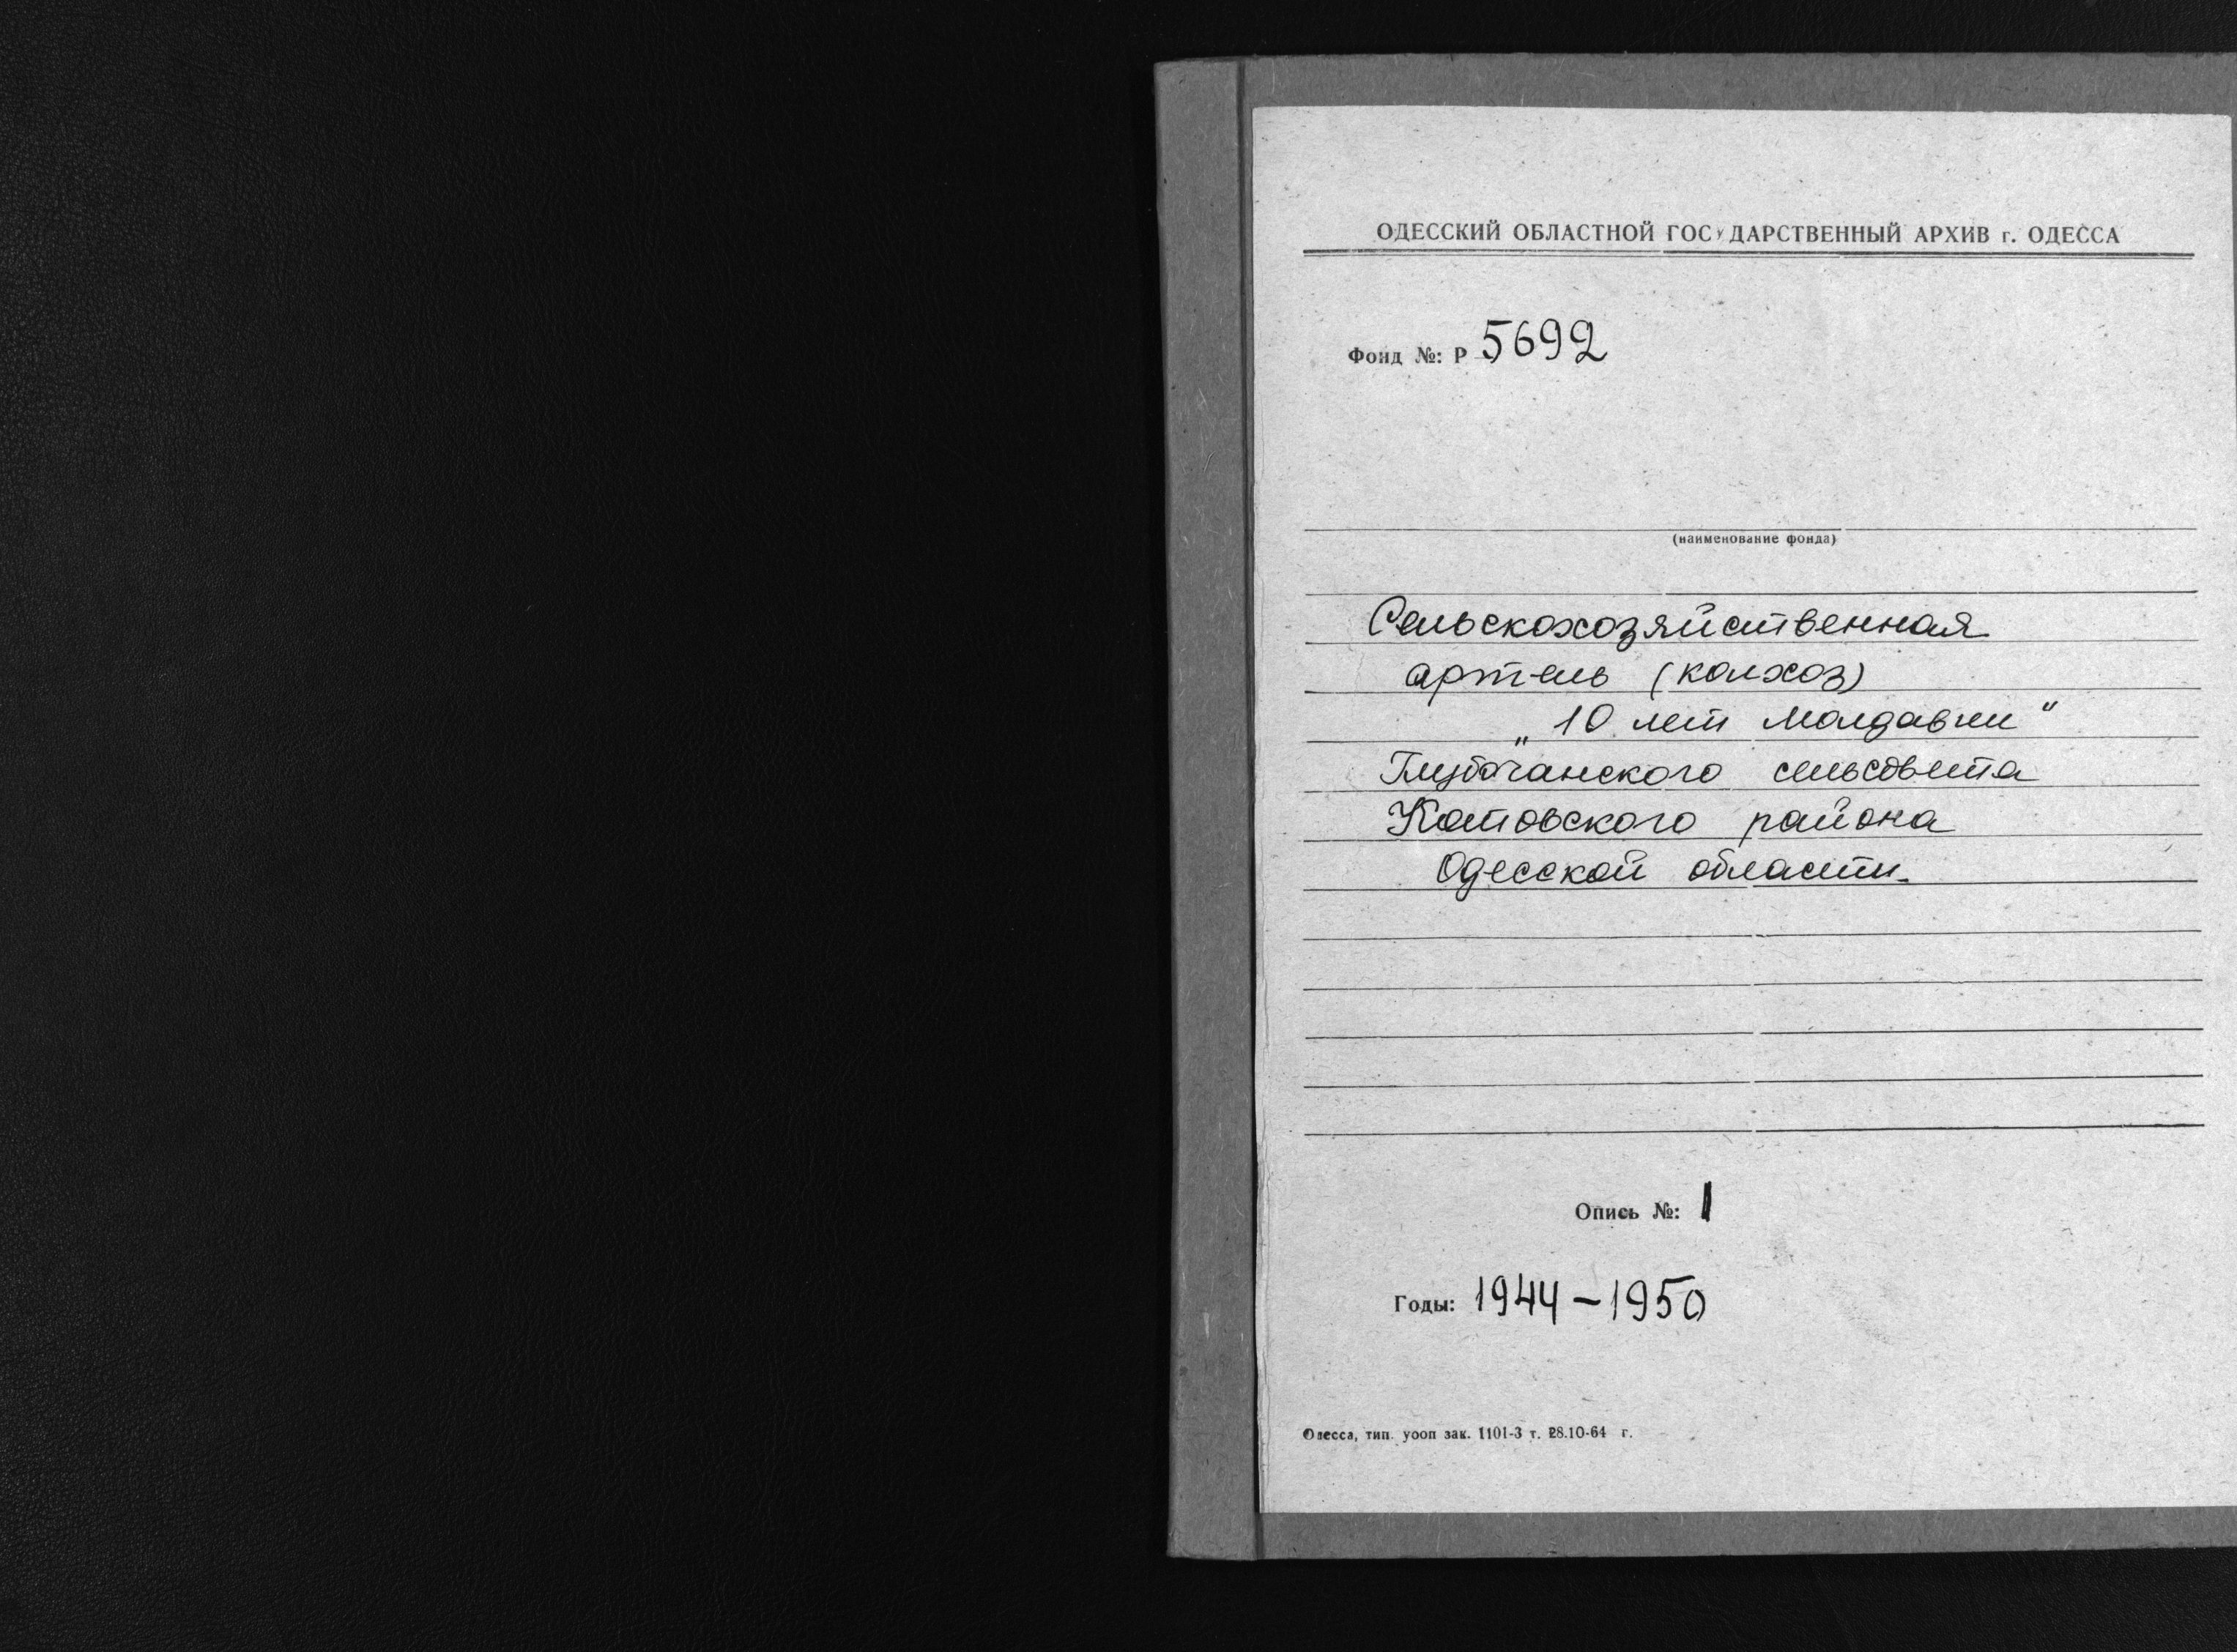 ОДЕССКИЙ ОБЛАСТНОЙ ГОСУДАРСТВЕННЫЙ АРХИВ г. ОДЕССА
Фонд №: Р 5692
(наименование фонда)
Сельскохозяйственная
артель (колхоз)
„10 лет Молдавии“
Глубочанского сельсовета
Котовского района
Одесской области.
Опись №: 1
Годы: 1944–1950
Одесса, тип. уооп зак. 1101-3 т. 28.10-64 г.